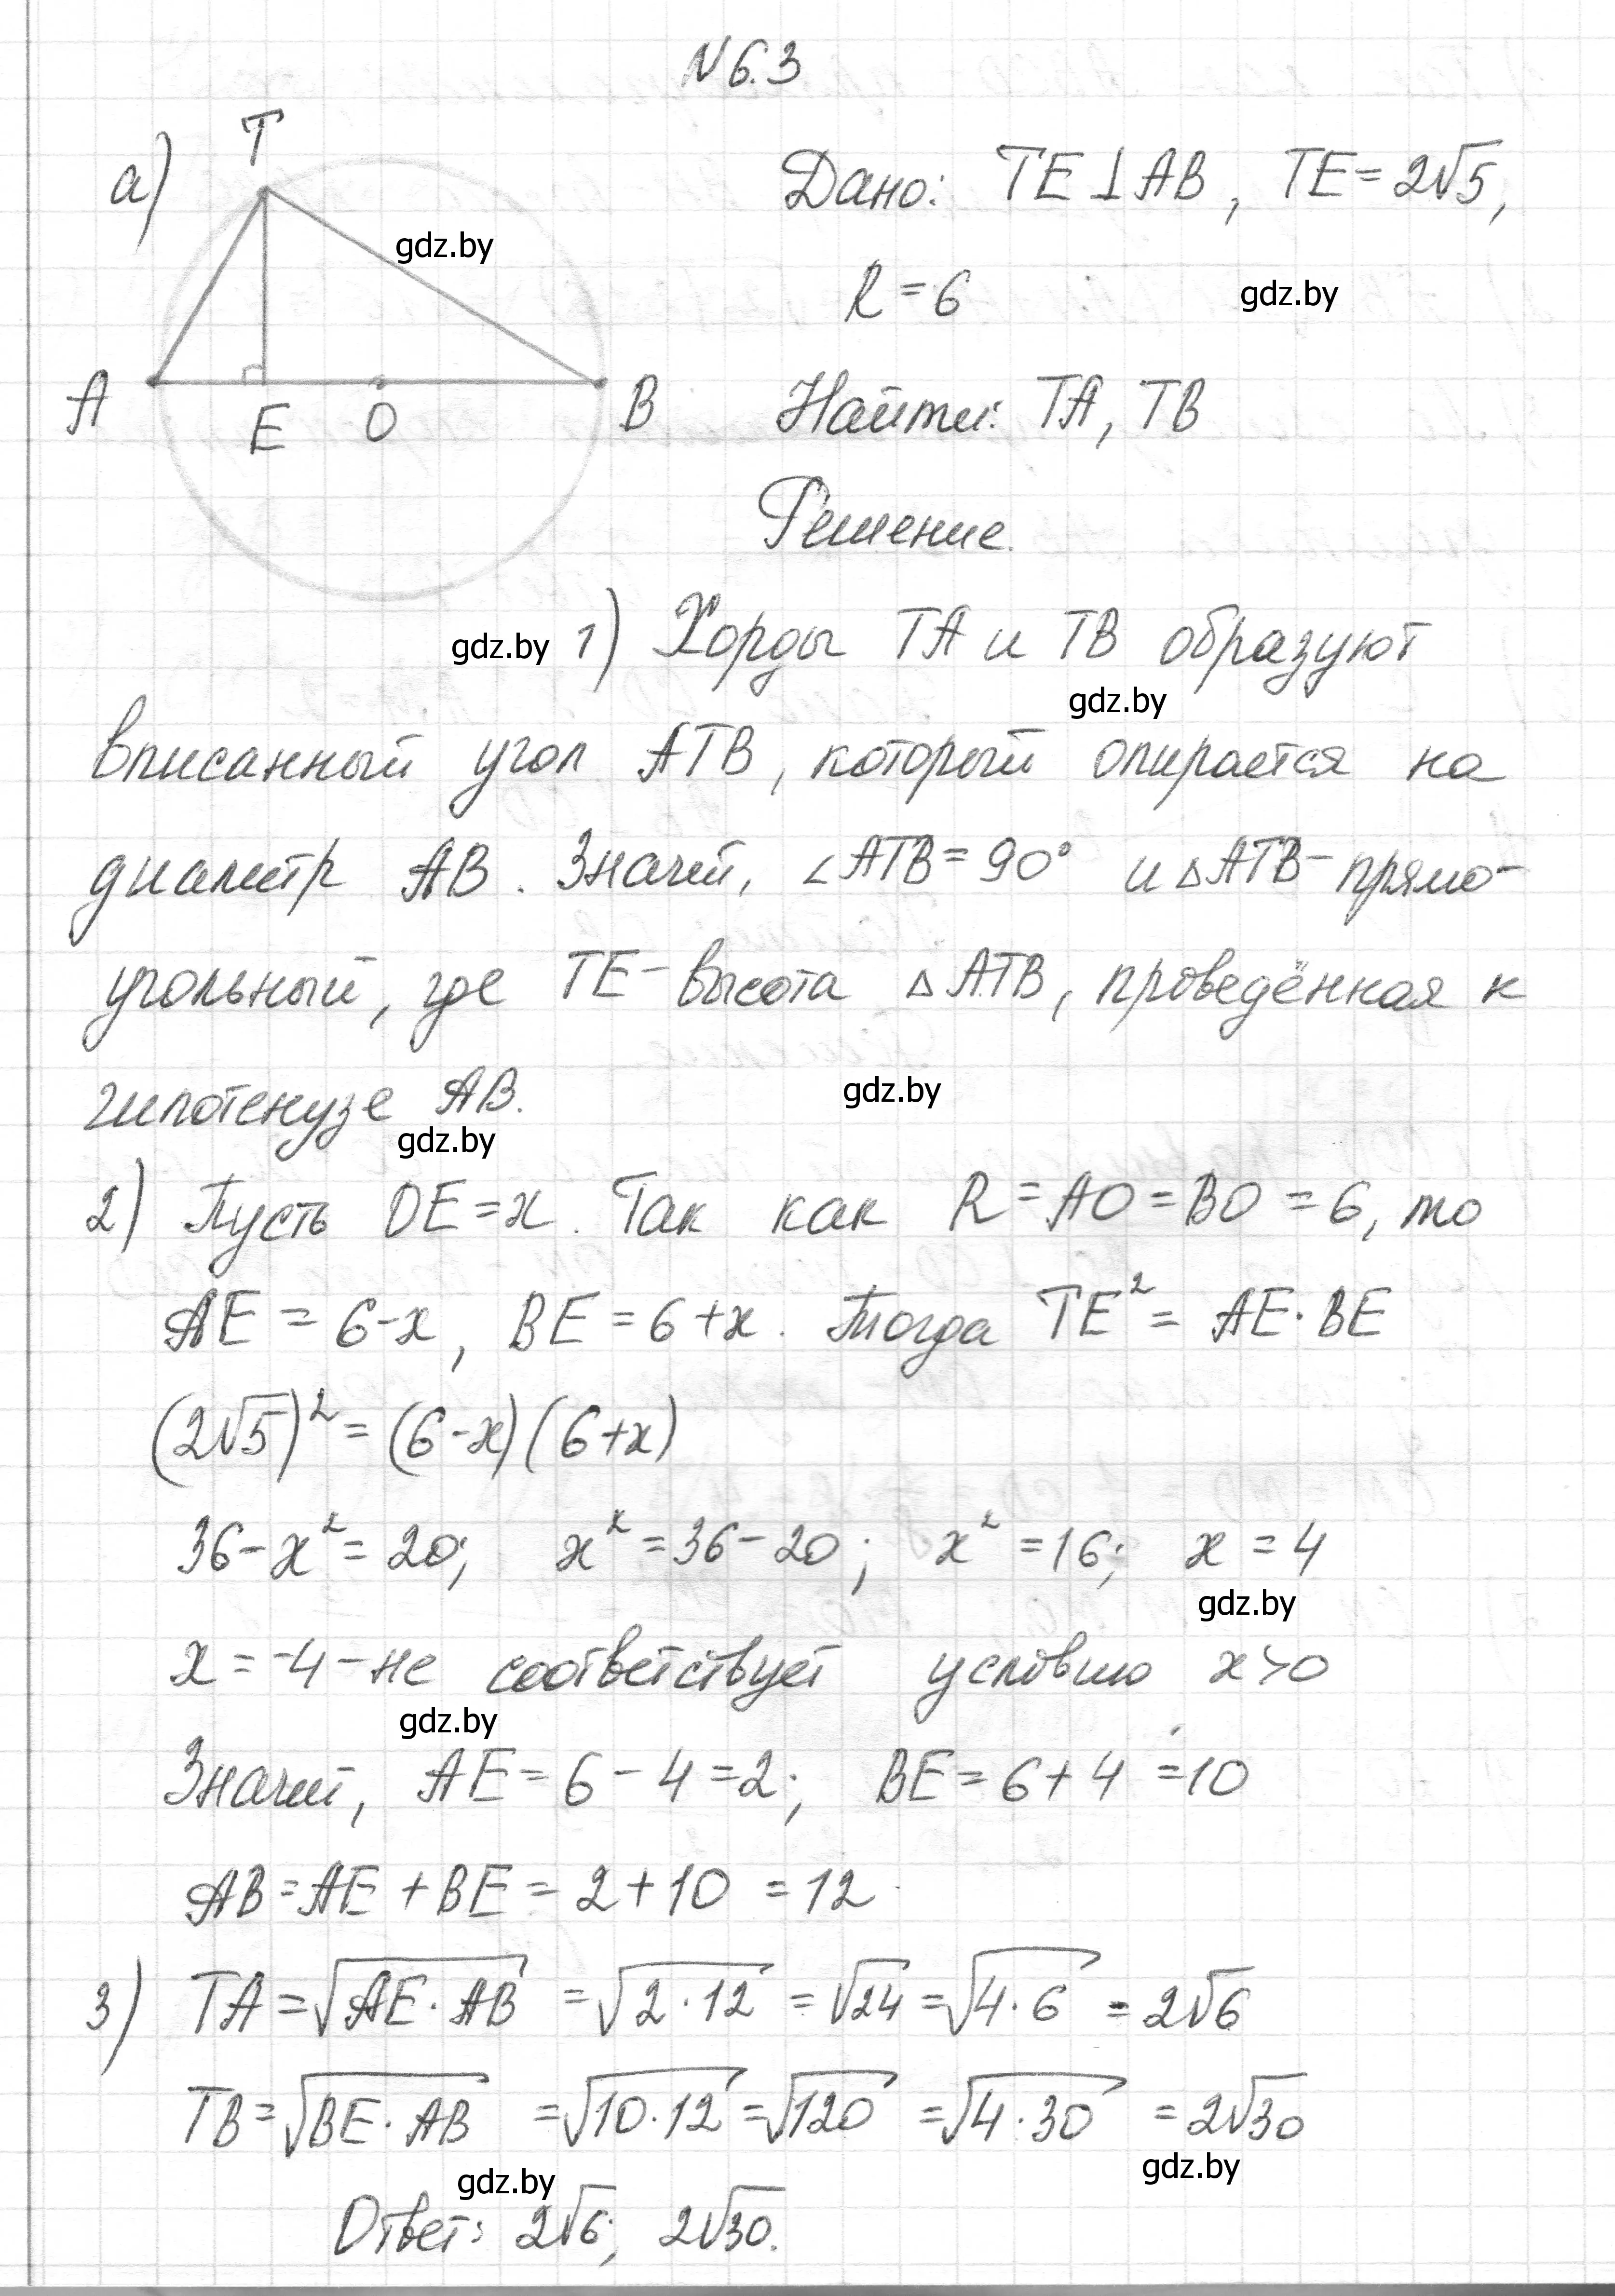 N 6.3
а)
T
A
E
O
B
gdz.by
Дано: TE ⊥ AB, TE = 2√5,
R = 6
gdz.by
Найти: TA, TB
Решение.
gdz.by 1) Хорды TA и TB образуют
gdz.by
вписанный угол ATB, который опирается на
диаметр AB. Значит, ∠ATB = 90° и △ATB - прямо-
угольный, где TE - высота △ATB, проведённая к
гипотенузе AB.
gdz.by
gdz.by
2) Пусть OE = x. Так как R = AO = BO = 6, то
AE = 6-x, BE = 6+x. Тогда TE² = AE·BE
(2√5)² = (6-x)(6+x)
36-x² = 20; x² = 36-20; x² = 16; x = 4
gdz.by
x = -4 - не соответствует условию x>0
gdz.by
Значит, AE = 6 - 4 = 2; BE = 6 + 4 = 10
AB = AE + BE = 2 + 10 = 12
3) TA = √(AE·AB) = √(2·12) = √24 = √(4·6) = 2√6
TB = √(BE·AB) = √(10·12) = √120 = √(4·30) = 2√30
gdz.by
gdz.by
Ответ: 2√6; 2√30.